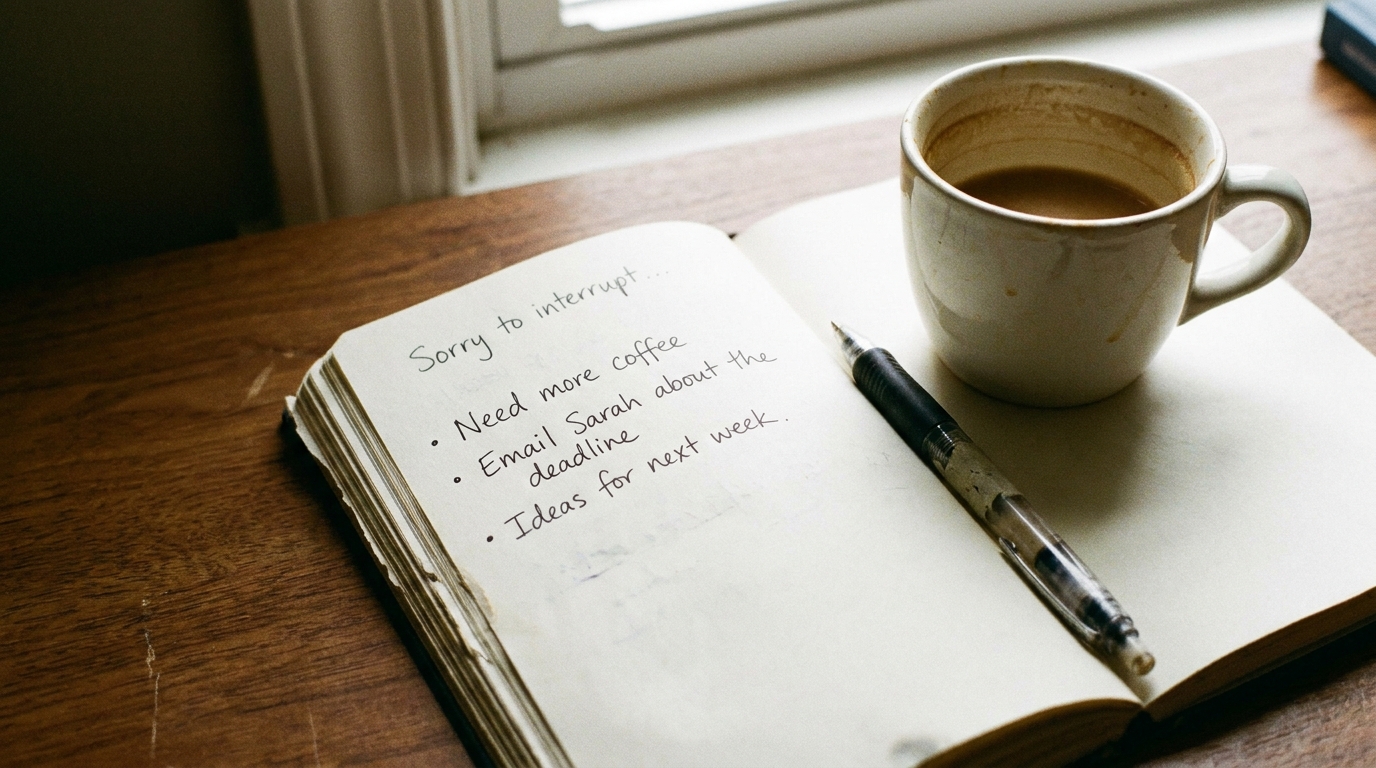 Sorry to interrupt...
• Need more coffee
• Email Sarah about the
deadline
• Ideas for next week.